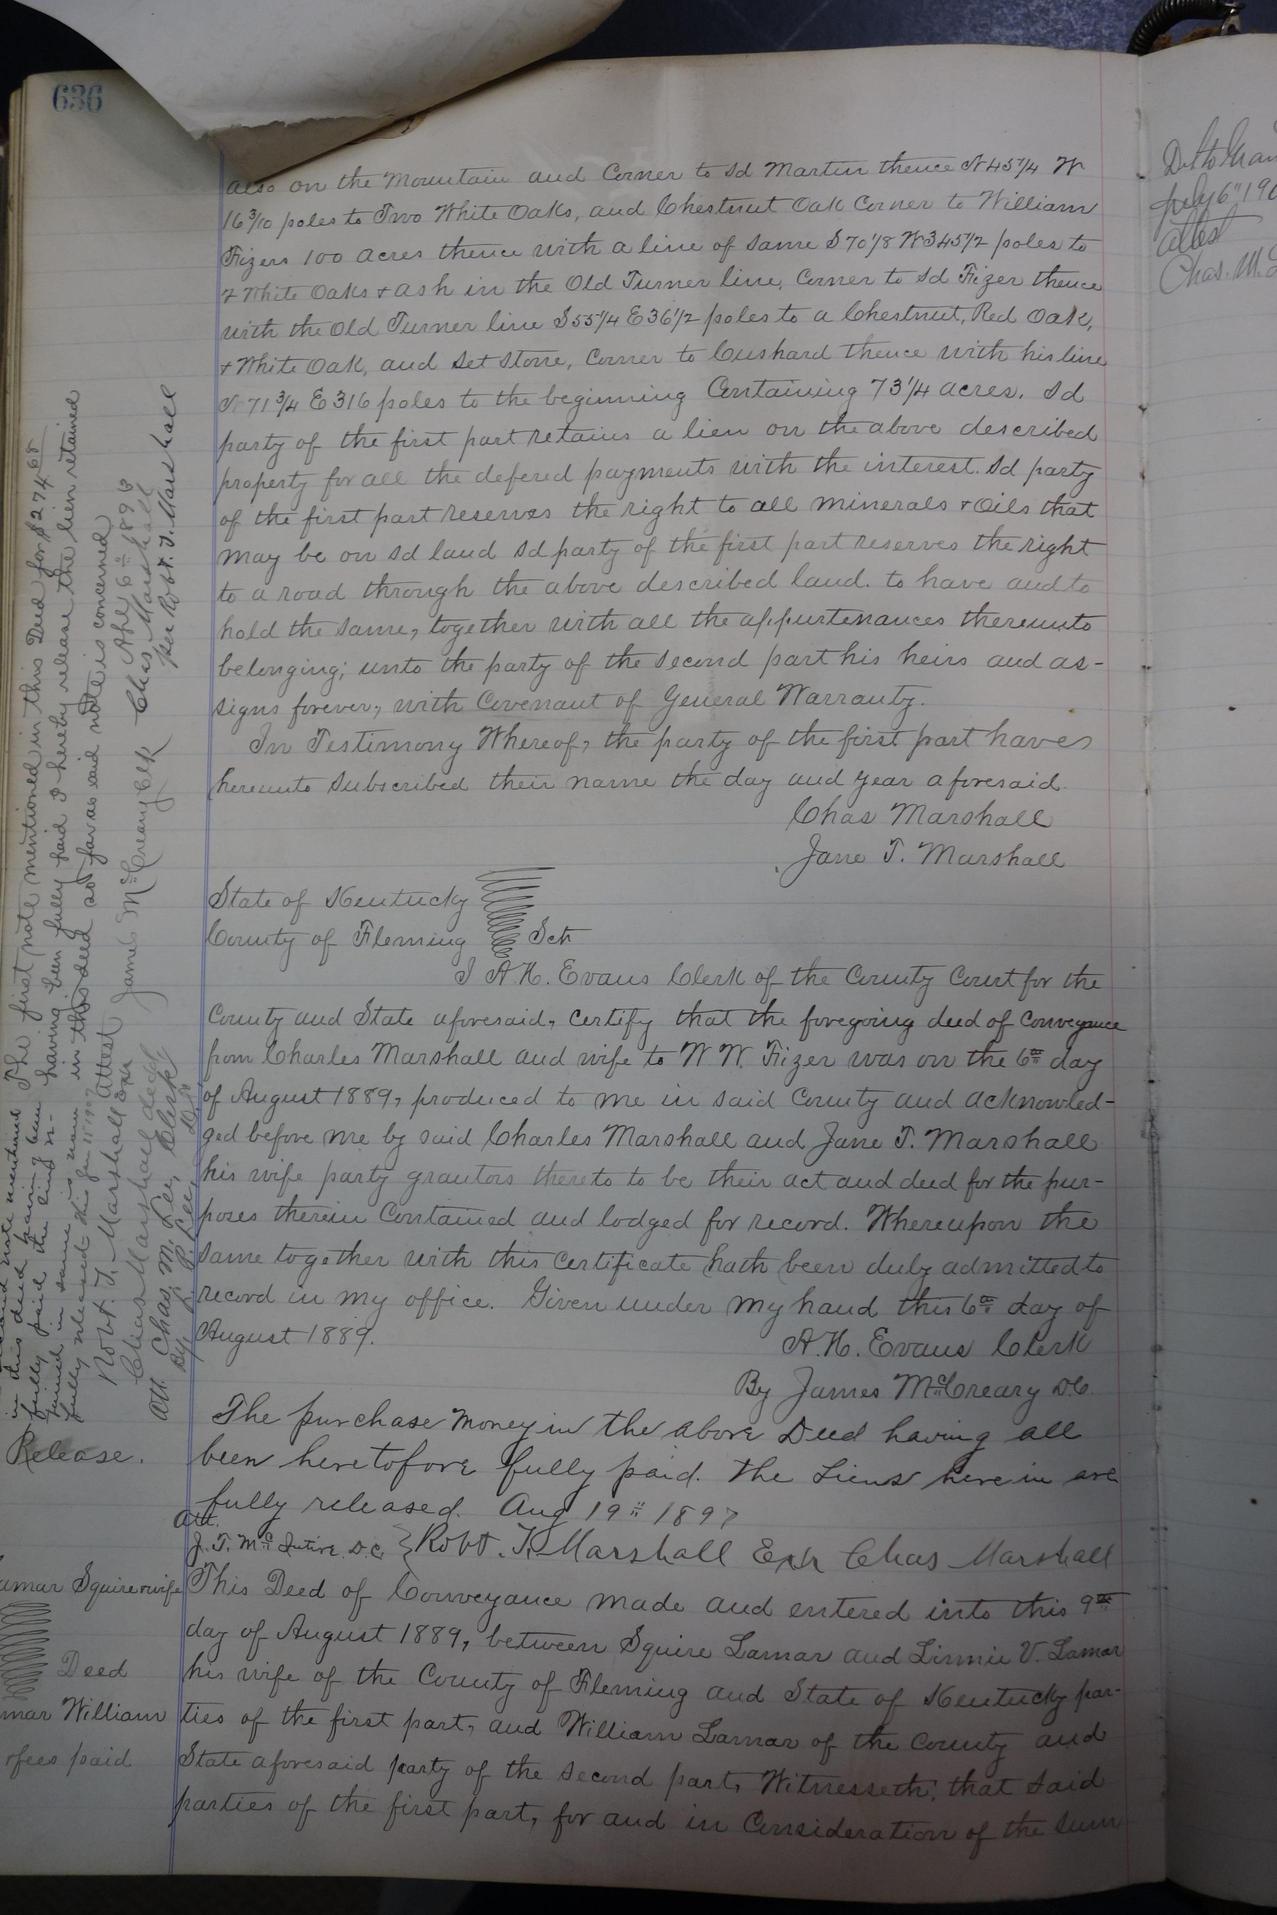 636
also on the Mountain and Corner to Sd Martin thence N 45 1/4 W
16 3/10 poles to Two White Oaks, and Chestnut Oak Corner to William
Fizers 100 acres thence with a line of same S 70 1/8 W 345 1/2 poles to
2 White Oaks + ash in the Old Turner line, Corner to Sd Fizer thence
with the Old Turner line S 55 1/4 E 36 1/2 poles to a Chestnut, Red Oak,
+ White Oak, and Set Stone, Corner to Cushard thence with his line
N 71 3/4 E 316 poles to the beginning Containing 73 1/4 acres. Sd
party of the first part retains a lien on the above described
property for all the defered payments with the interest. Sd party
of the first part reserves the right to all minerals + Oils that
may be on Sd land Sd party of the first part reserves the right
to a road through the above described land. to have and to
hold the same, together with all the appurtenances thereunto
belonging; unto the party of the second part his heirs and as-
signs forever, with Covenant of General Warranty.
In Testimony Whereof, the party of the first part have
hereunto subscribed their name the day and year aforesaid.
Chas Marshall
Jane T. Marshall
State of Kentucky
County of Fleming Sct
I A.H. Evans Clerk of the County Court for the
County and State aforesaid, certify that the foregoing deed of Conveyance
from Charles Marshall and wife to W W. Fizer was on the 6th day
of August 1889, produced to me in said County and acknowled-
ged before me by said Charles Marshall and Jane T. Marshall
his wife party grantors thereto to be their act and deed for the pur-
poses therein Contained and lodged for record. Whereupon the
same together with this certificate hath been duly admitted to
record in my office. Given under my hand this 6th day of
August 1889.
A.H. Evans Clerk
By James McCreary D.C.
The purchase money in the above Deed having all
been heretofore fully paid. The Liens herein are
fully released. Aug 19" 1897
Att.
J. T. McIntire. D.C. } Robt. T. Marshall Exr Chas Marshall
This Deed of Conveyance made and entered into this 9th
day of August 1889, between Squire Lamar and Linnie V. Lamar
his wife of the County of Fleming and State of Kentucky par-
ties of the first part, and William Lamar of the County and
State aforesaid party of the second part, Witnesseth; that Said
parties of the first part, for and in Consideration of the sum
The first note mentioned in this Deed for $274 68
having been fully paid I hereby release the lien retained
in this deed so far as said note is concerned
Attest
James McCreary Clk
Chas. Marshall
per Robt. T. Marshall
in this deed having been
fully paid the lien
fully released this Jan
Robt. T. Marshall Exr
Chas Marshall decd
Att. Chas. M. Lee, Clerk
Release.
amar Squire + wife
Deed
mar William
fees paid
July 6" 190
attest
Chas. M.